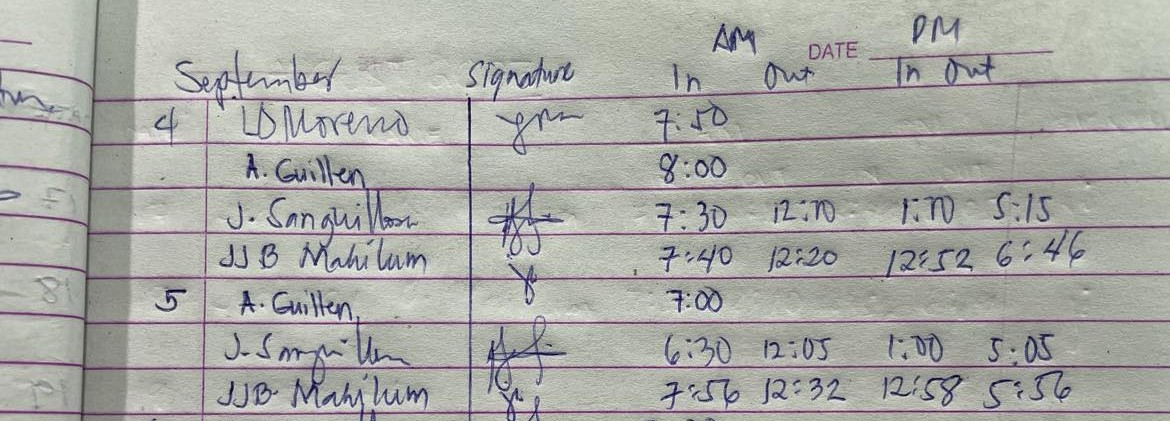 AM DATE PM
September Signature In Out In Out
4 LD Moreno 7:50
A. Guillen 8:00
J. Sanguillosa 7:30 12:10 1:10 5:15
JJB Mahilum 7:40 12:20 12:52 6:46
5 A. Guillen 7:00
J. 6:30 12:05 1:00 5:05
JJB. Mahilum 7:56 12:32 12:58 5:56